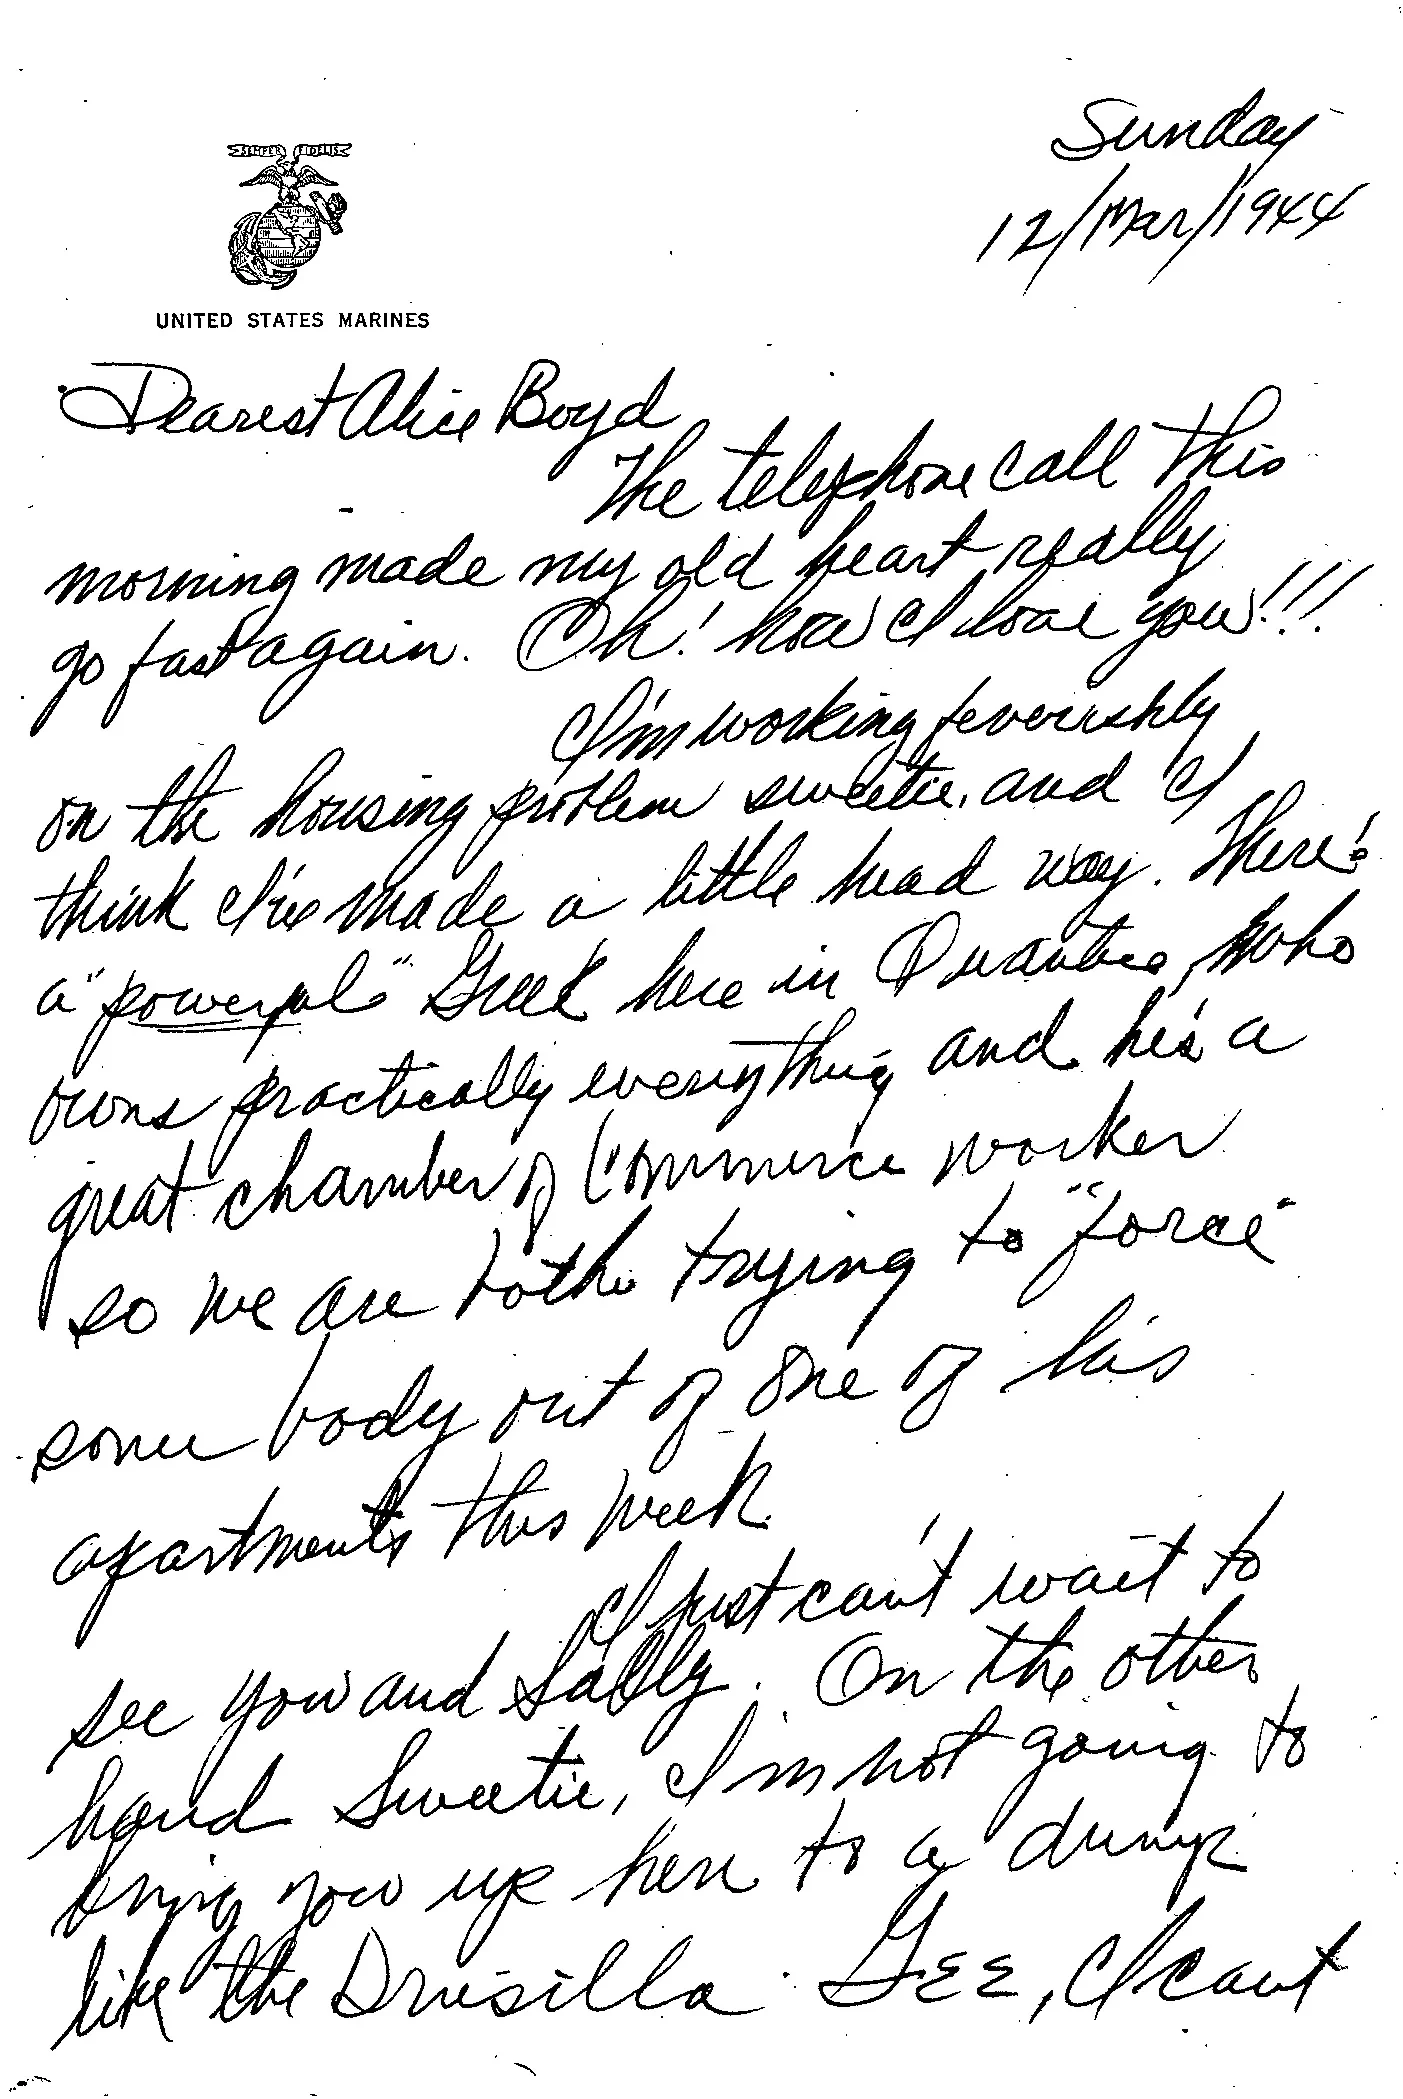 Sunday
12/Mar/1944
SEMPER FIDELIS
UNITED STATES MARINES
Dearest Alice Boyd
The telephone call this
morning made my old heart really
go fast again. Oh! how I love you!!!
I'm working feverishly
on the housing problem sweetie, and I
think I've made a little head way. There's
a "powerful" Greek here in Quantico, who
owns practically everything and he's a
great chamber of Commerce worker
so we are both trying to "force"
some body out of one of his
apartments this week
I just can't wait to
see you and Sally. On the other
hand Sweetie, I'm not going to
bring you up here to a dump
like the Drusilla. GEE, I cant